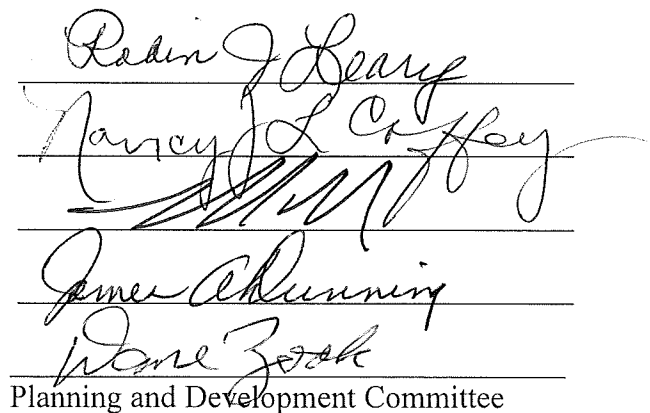 Robin J Leary
Nancy L Coffey
James A Dunning
Dane Zook
Planning and Development Committee